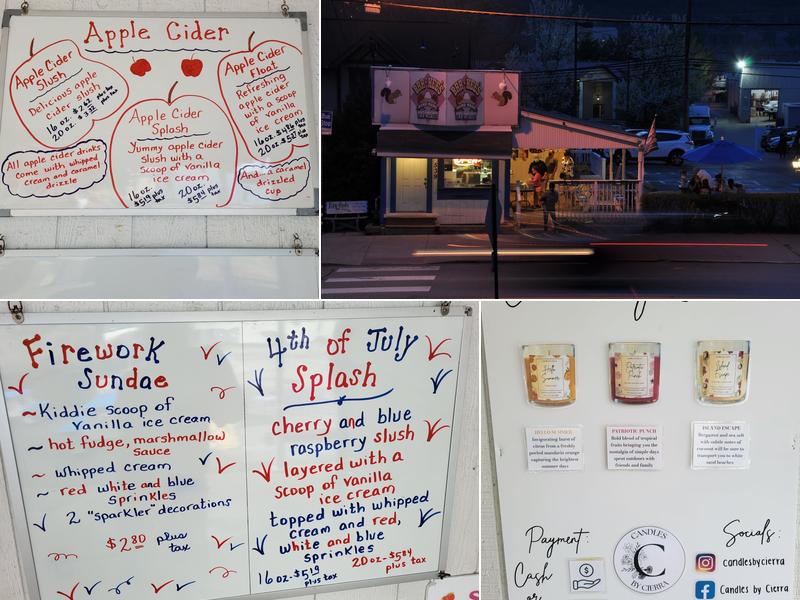 Apple Cider
Apple Cider
Slush
Delicious apple
cider slush
16 oz. $2.62 plus tax
20 oz. $3.32 plus tax
All apple cider drinks
come with whipped
cream and caramel
drizzle
Apple Cider
Splash
Yummy apple cider
slush with a
Scoop of vanilla
ice cream
16 oz. $5.19 plus tax
20 oz. $5.84 plus tax
Apple Cider
Float
Refreshing
apple cider
with a scoop
of vanilla
ice cream
16 oz.
20 oz.
plus tax
And... a caramel
drizzled
cup
Firework
Sundae
~Kiddie scoop of
vanilla ice cream
~ hot fudge, marshmallow
sauce
~ whipped cream
~ red white and blue
sprinkles
2 "sparkler" decorations
$2.80 plus
tax
4th of July
Splash
cherry and blue
raspberry slush
layered with a
scoop of vanilla
ice cream
topped with whipped
cream and red,
white and blue
sprinkles
16 oz-$5.19
plus tax
20 oz-$5.84
plus tax
HELLO SUMMER
Invigorating burst of
citrus from a freshly
peeled mandarin orange
capturing the brightest
summer days
PATRIOTIC PUNCH
Bold blend of tropical
fruits bringing you the
nostalgia of simple days
spent outdoors with
friends and family
ISLAND ESCAPE
Bergamot and sea salt
with subtle notes of
coconut will be sure to
transport you to white
sand beaches
Payment:
Cash
or
CANDLES
C
BY CIERRA
Socials:
candlesbycierra
Candles by Cierra